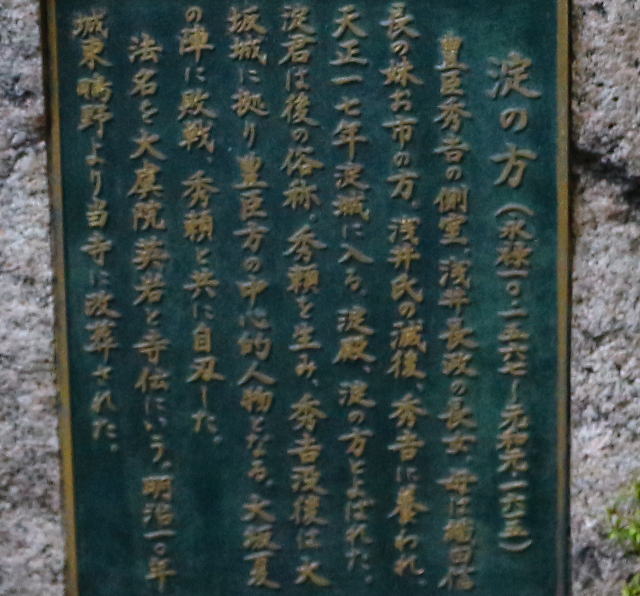 淀の方（永禄一〇・一五六七〜元和元・一六一五）
豊臣秀吉の側室、浅井長政の長女、母は織田信
長の妹お市の方。浅井氏の滅後、秀吉に養われ、
天正一七年淀城に入る。淀殿、淀の方とよばれた。
淀君は後の俗称。秀頼を生み、秀吉没後は大
坂城に拠り豊臣方の中心的人物となる。大坂夏
の陣に敗戦、秀頼と共に自刃した。
法名を大虞院英岩と寺伝にいう。明治一〇年
城東鴫野より当寺に改葬された。